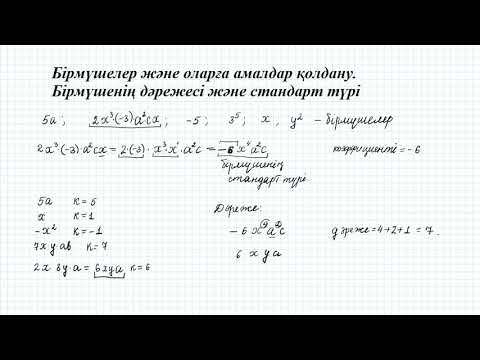 Бірмүшелер және оларға амалдар қолдану.
Бірмүшенің дәрежесі және стандарт түрі
5a ; 2x³(-3)a²cx ; -5 ; 3⁵ ; x , y² - бірмүшелер
2x³(-3)·a²cx = 2·(-3)·x³x¹·a²c = -6x⁴a²c коэффициенті = -6
бірмүшенің
стандарт түрі.
5a k = 5
x k = 1
-x² k = -1
7xyab k = 7
2x 3y·a = 6xya, k = 6
Дәреже:
-6x⁴a²c дәреже = 4+2+1 = 7.
6xya